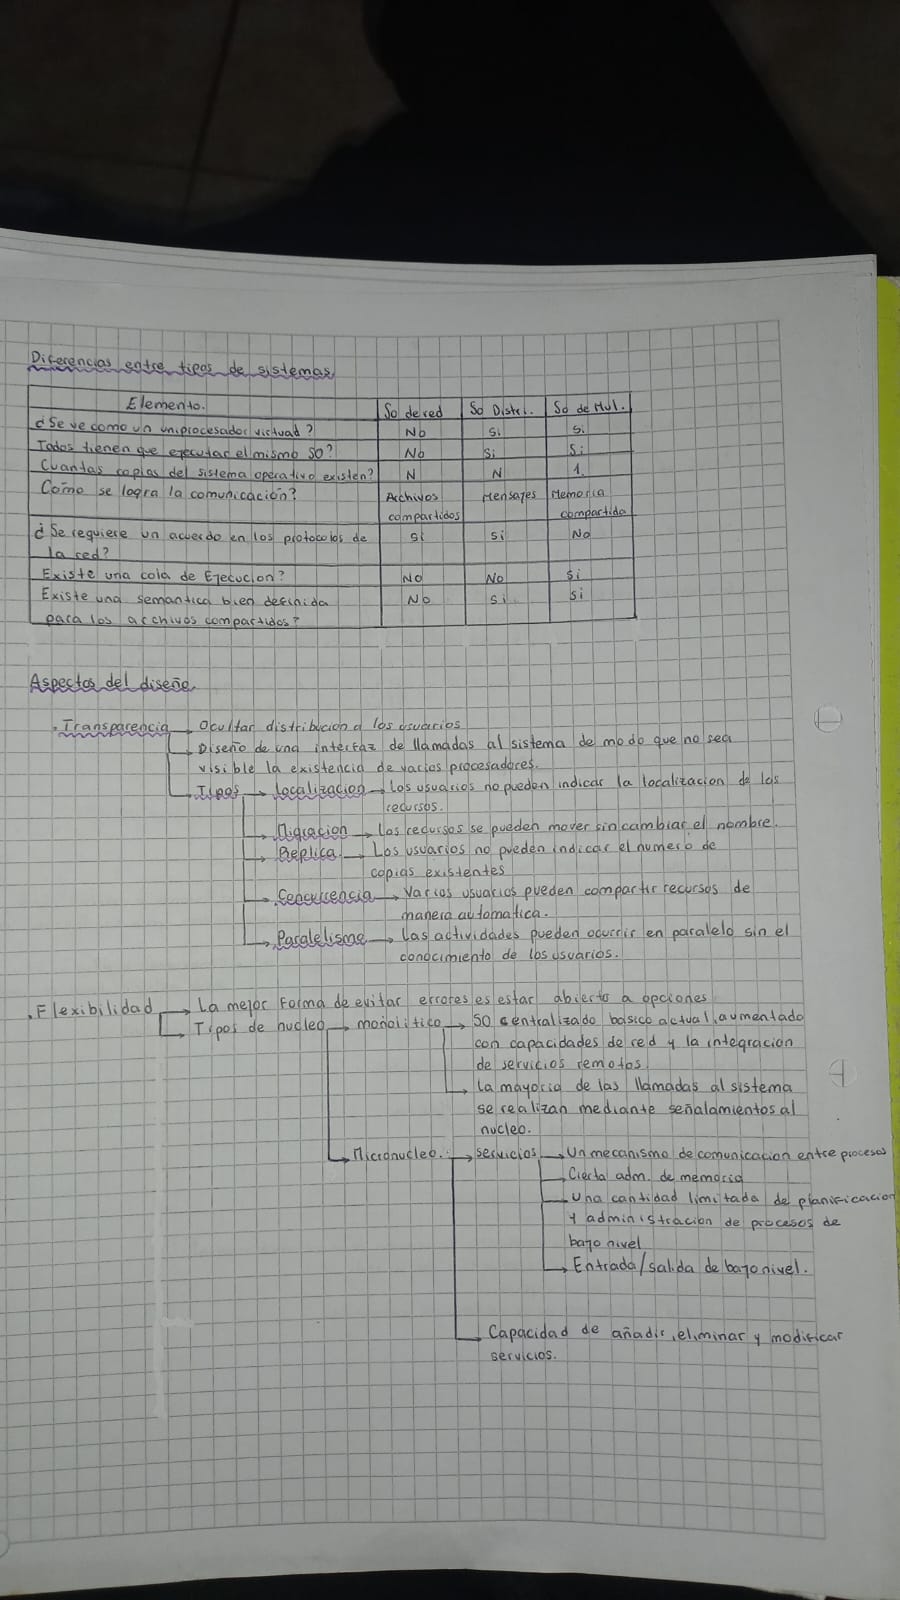 Diferencias entre tipos de sistemas
Elemento. So de red So Distri. So de Mul.
¿Se ve como un uniprocesador virtual? No Si Si
Todos tienen que ejecutar el mismo SO? No Si Si
Cuantas copias del sistema operativo existen? N N 1.
Como se logra la comunicación? Archivos Mensajes Memoria
compartidos compartida
¿Se requiere un acuerdo en los protocolos de Si Si No
la red?
Existe una cola de Ejecucion? No No Si
Existe una semantica bien definida No Si Si
para los archivos compartidos?
Aspectos del diseño.
. Transparencia → Ocultar distribucion a los usuarios
→ Diseño de una interfaz de llamadas al sistema de modo que no sea
visible la existencia de varios procesadores.
→ Tipos → Localizacion → Los usuarios no pueden indicar la localizacion de los
recursos.
→ Migracion → Los recursos se pueden mover sin cambiar el nombre.
→ Replica. → Los usuarios no pueden indicar el numero de
copias existentes
→ Concurrencia → Varios usuarios pueden compartir recursos de
manera automatica.
→ Paralelismo → Las actividades pueden ocurrir en paralelo sin el
conocimiento de los usuarios.
. Flexibilidad → La mejor Forma de evitar errores es estar abierto a opciones
→ Tipos de nucleo → monolitico → SO centralizado basico actual, aumentado
con capacidades de red y la integración
de servicios remotos
→ La mayoria de las llamadas al sistema
se realizan mediante señalamientos al
nucleo.
→ Micronucleo. → servicios → Un mecanismo de comunicacion entre procesos
→ Cierta adm. de memoria
→ Una cantidad limitada de planificacion
y administracion de procesos de
bajo nivel
→ Entrada/salida de bajo nivel.
→ Capacidad de añadir, eliminar y modificar
servicios.